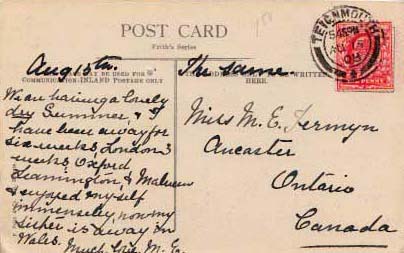 POST CARD
Frith's Series
TEIGNMOUTH
MAY BE USED FOR
COMMUNICATION-INLAND POSTAGE ONLY
WRITTEN
HERE.
Aug 15th.
We are having a lovely
dry Summer, & I
have been away for
six weeks, London 3
weeks Oxford
Leamington, & Malvern
& enjoyed myself
immenseley, now my
sister is away in
Wales.
Much love M. E.
The same.
Miss M. E. Jermyn
Ancaster
Ontario
Canada